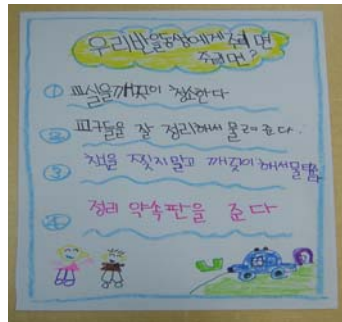 우리반을동생에게 주려면
주려면?
① 교실을깨끗이 청소한다
② 피구들을 잘 정리해서 물려 준다.
③ 책을 찢지말고 깨끗이해서물려줌
④ 정리 약속판을 준다